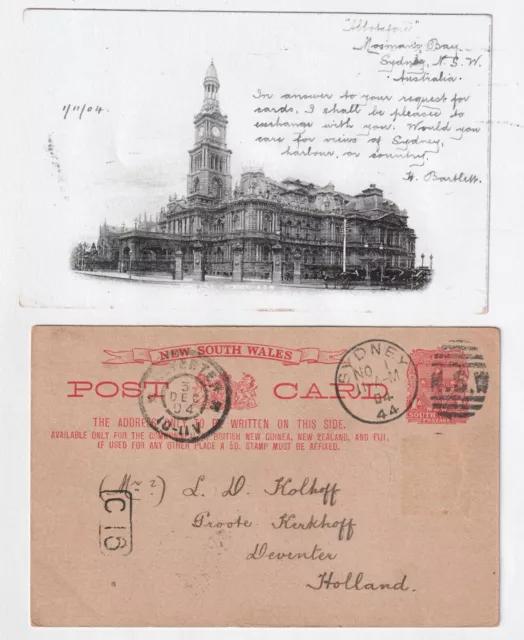 "Abbotsford"
Mosman's Bay
Sydney, N. S. W.
Australia.
1/11/04.
In answer to your request for
cards, I shall be pleased to
exchange with you. Would you
care for views of Sydney,
harbour, or country.
H. Bartlett.
NEW SOUTH WALES
POST CARD
SYDNEY
NO 1
A-M
04
44
N.S.W
DEVENTER
3
DEC
04
THE ADDRESS TO BE WRITTEN ON THIS SIDE.
AVAILABLE ONLY FOR THE BRITISH NEW GUINEA, NEW ZEALAND, AND FIJI.
IF USED FOR ANY OTHER PLACE A ½D. STAMP MUST BE AFFIXED.
(Mr ?) L. D. Kolhoff
Groote Kerkhoff
Deventer
Holland.
C 16